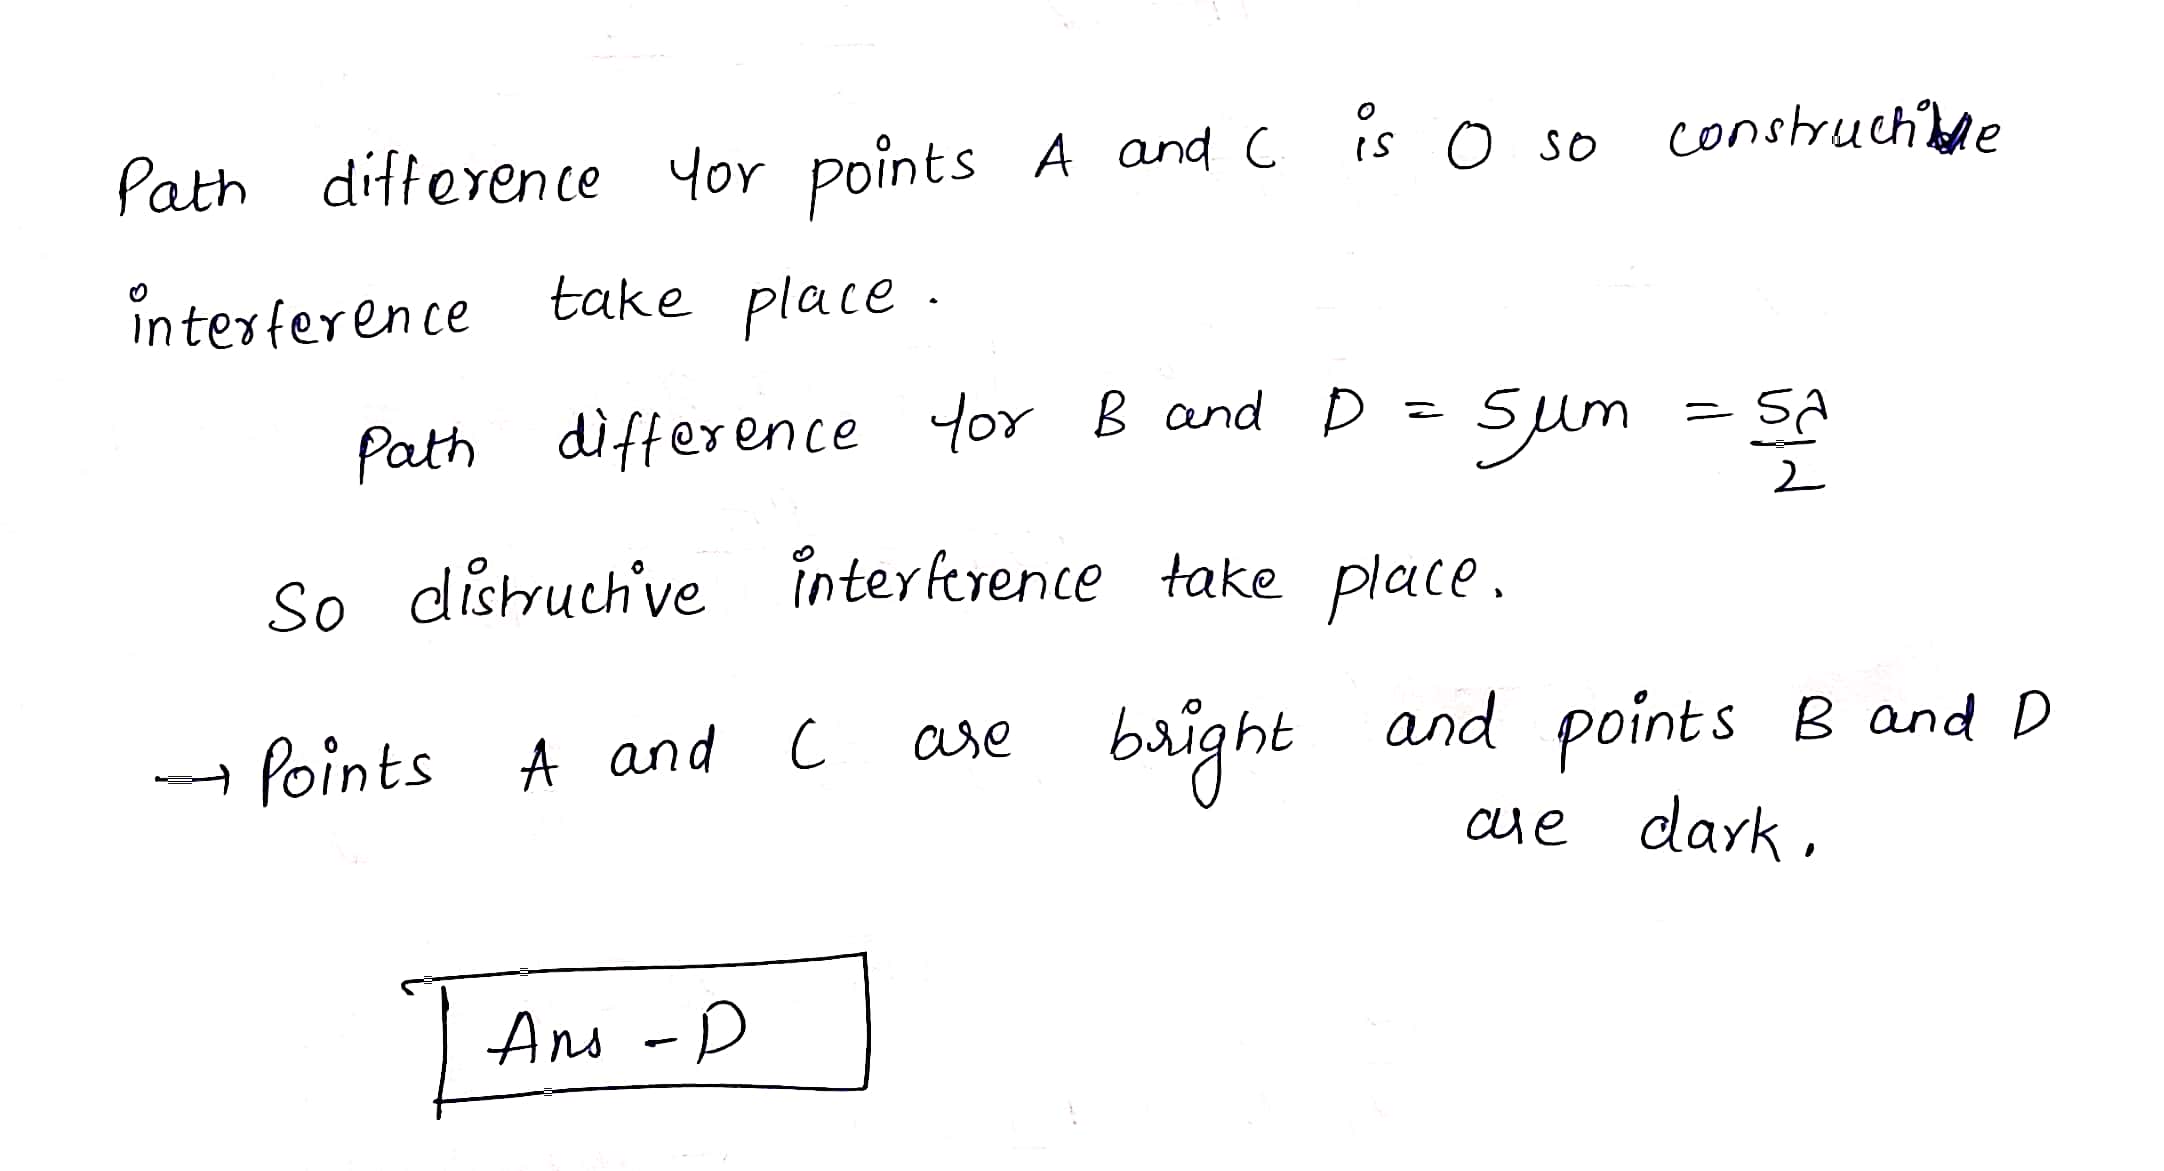 Path difference for points A and C is 0 so constructive
interference take place.
Path difference for B and D = 5μm = 5λ/2
So distructive interference take place.
→ Points A and C are bright and points B and D
are dark.
Ans - D